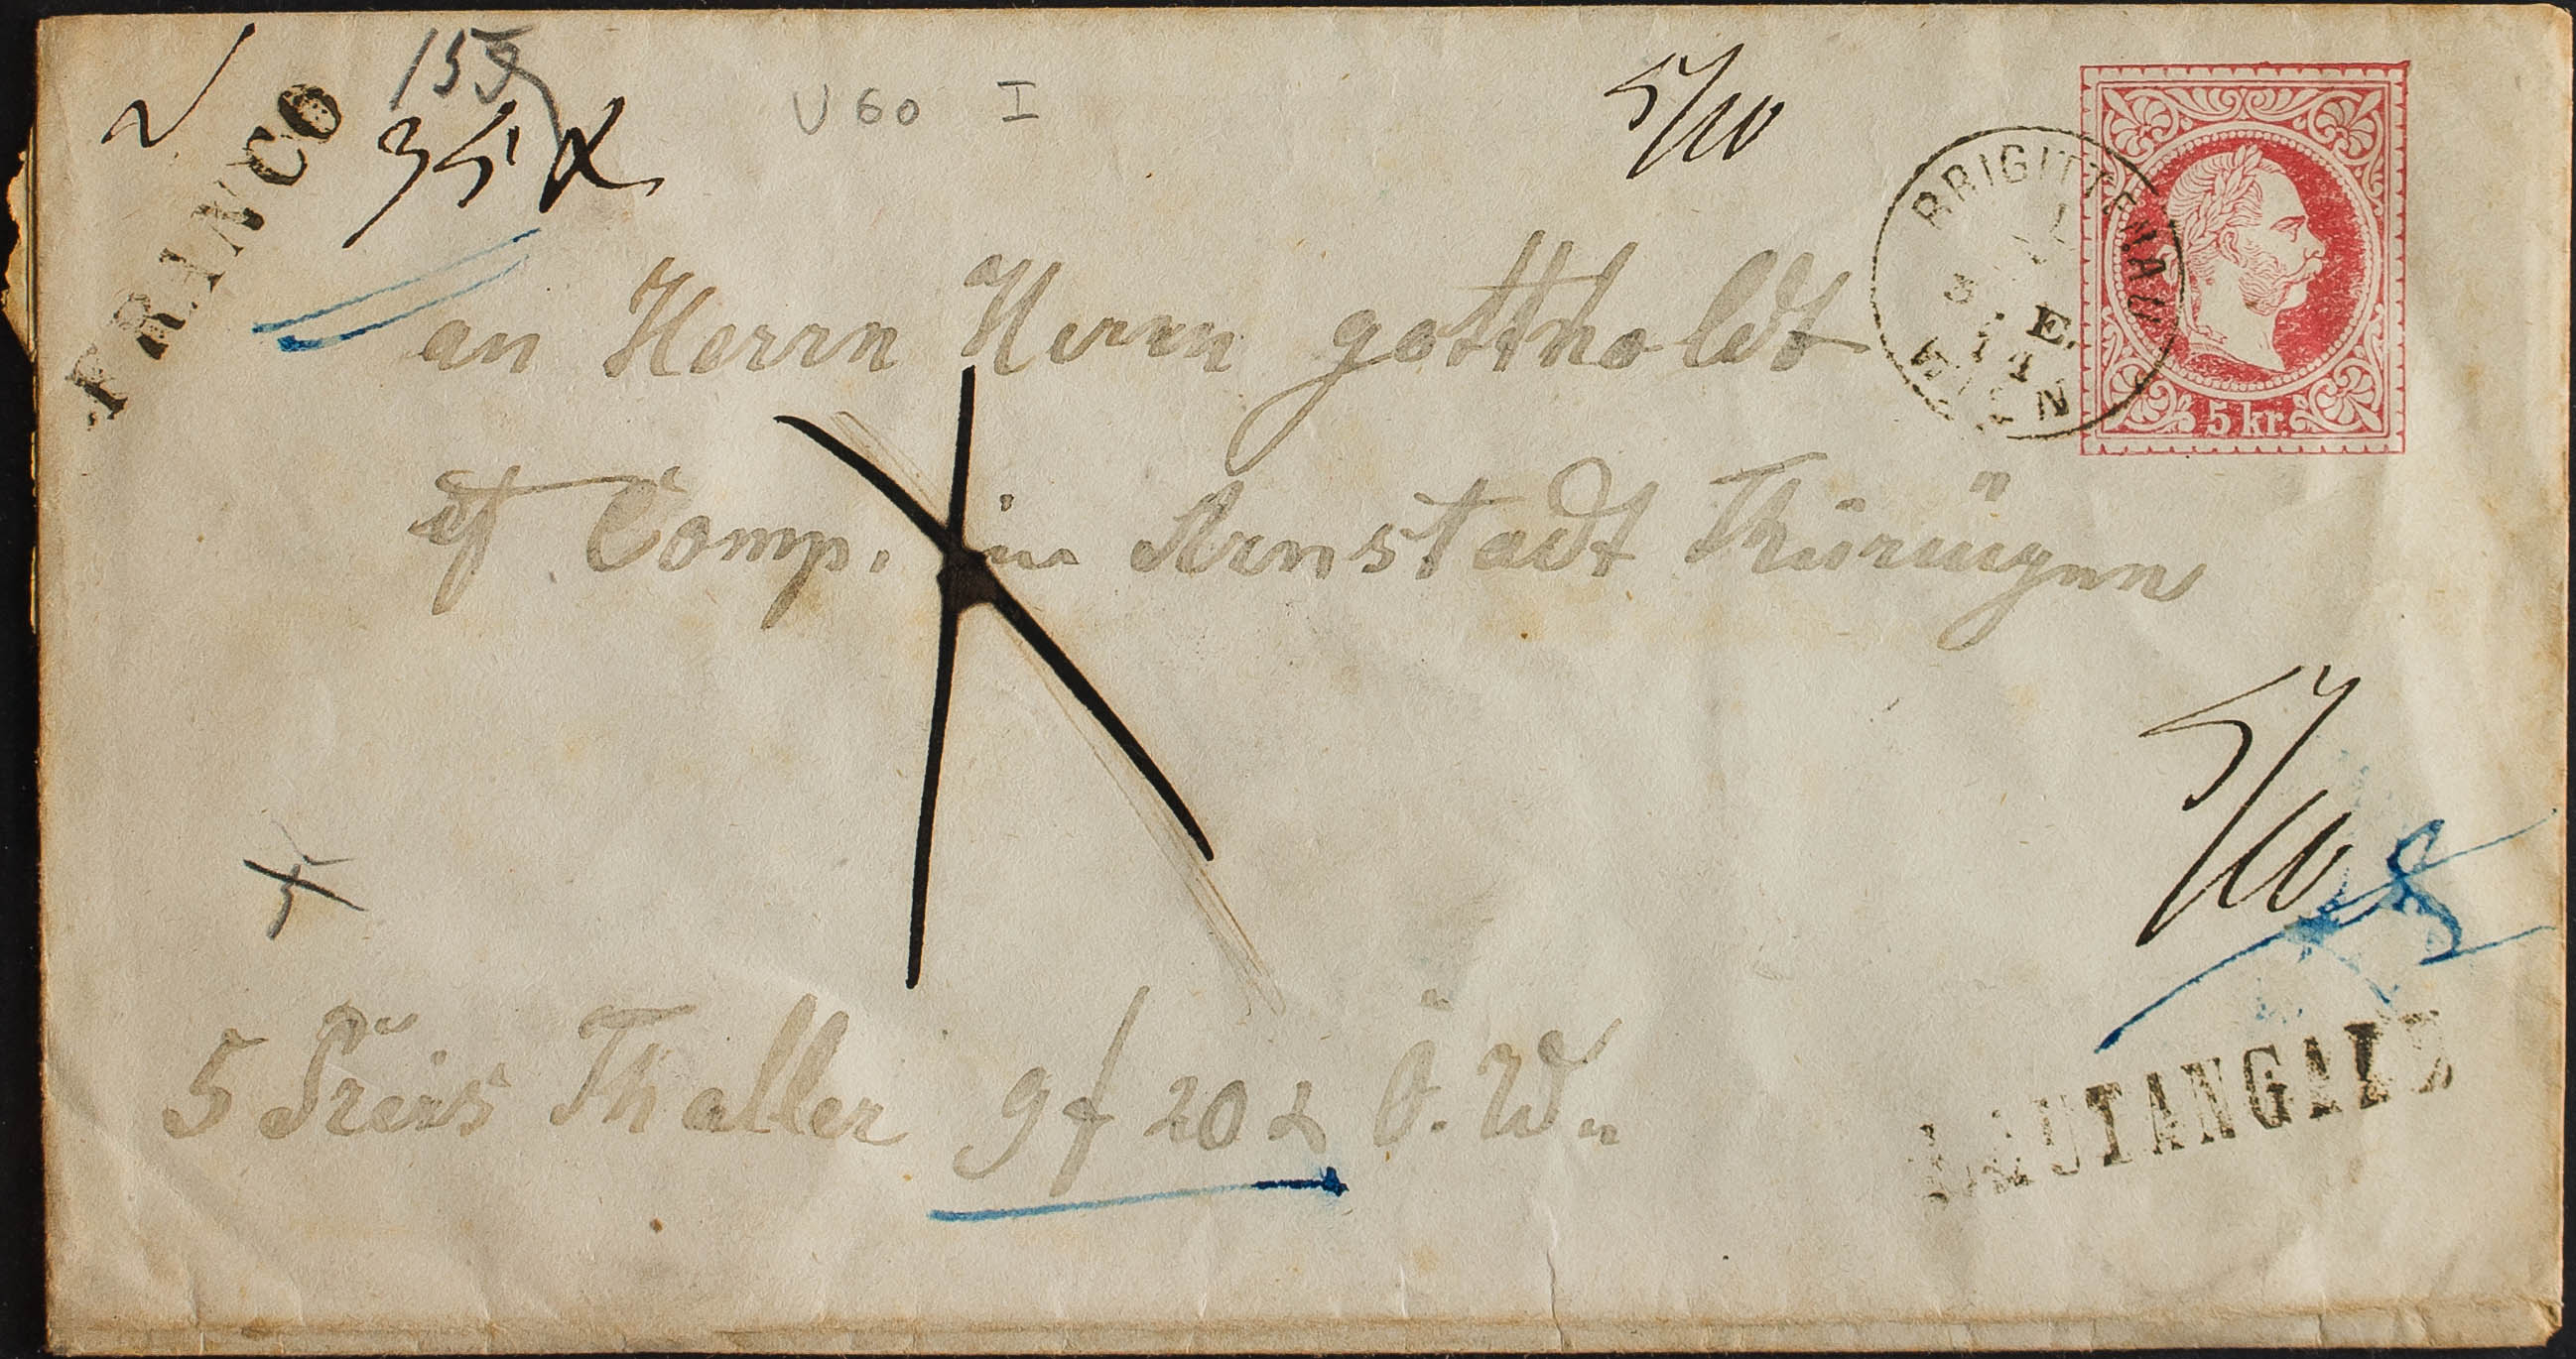 FRANCO
155
35 x
U 60 I
5/10
BRIGITTENAU
E.
WIEN
5 kr.
an Herrn Herrn gottholdt
et Comp. in Arnstadt Thüringen
5/10
5 Preis Thaller 9 f 20 x Ö. W.
LAUTANGABE